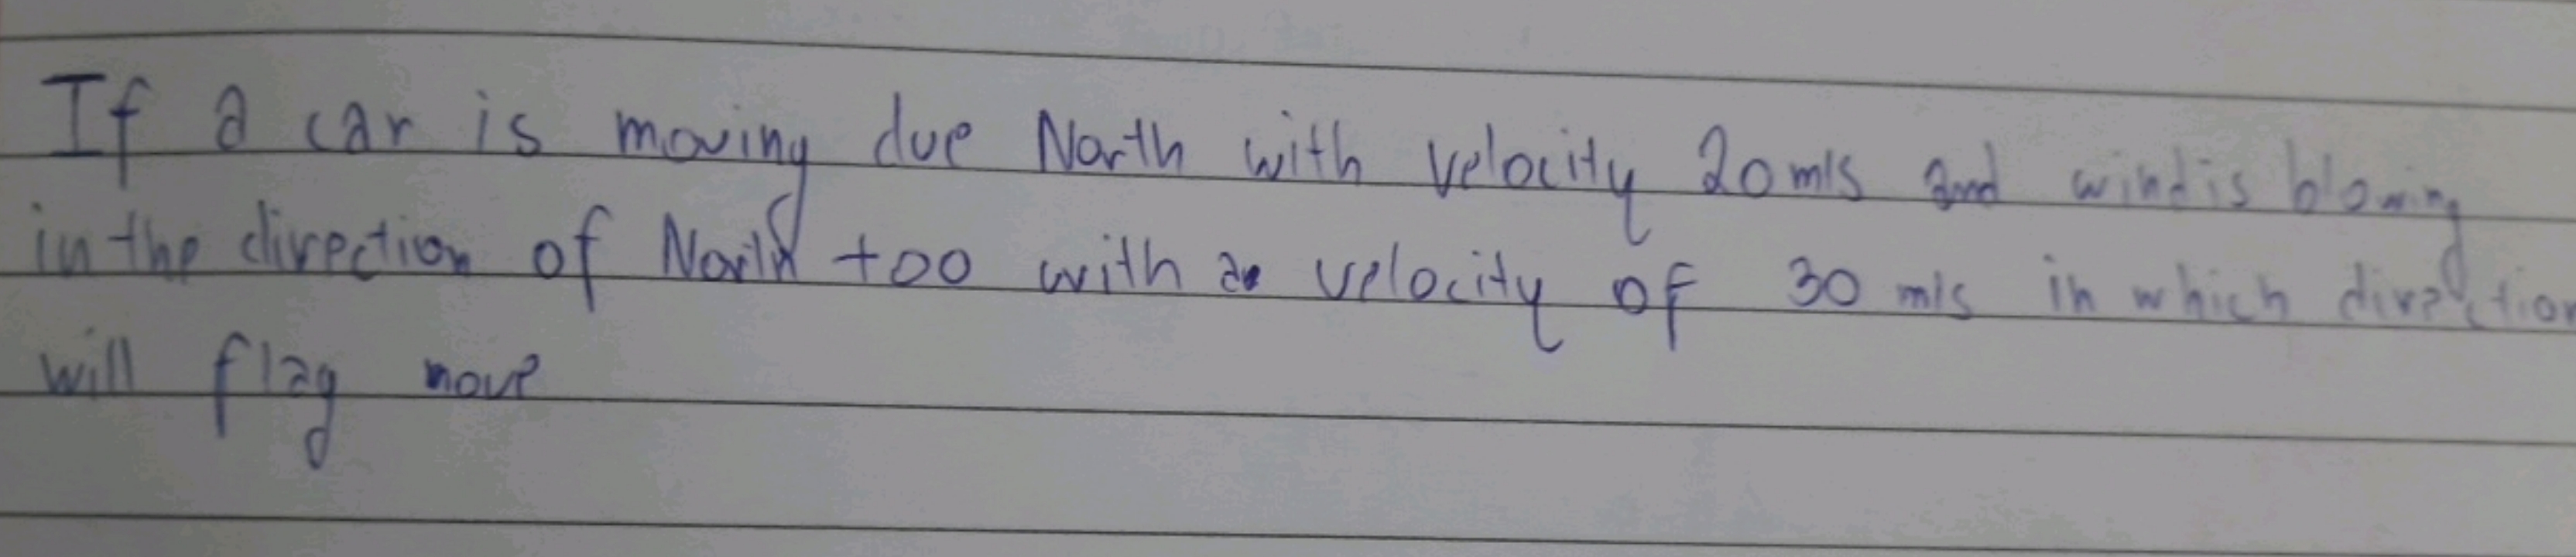 If a car is moving due North with velocity 20 m/s and wind is blowing
in the direction of North too with a velocity of 30 m/s in which direction
will flag move